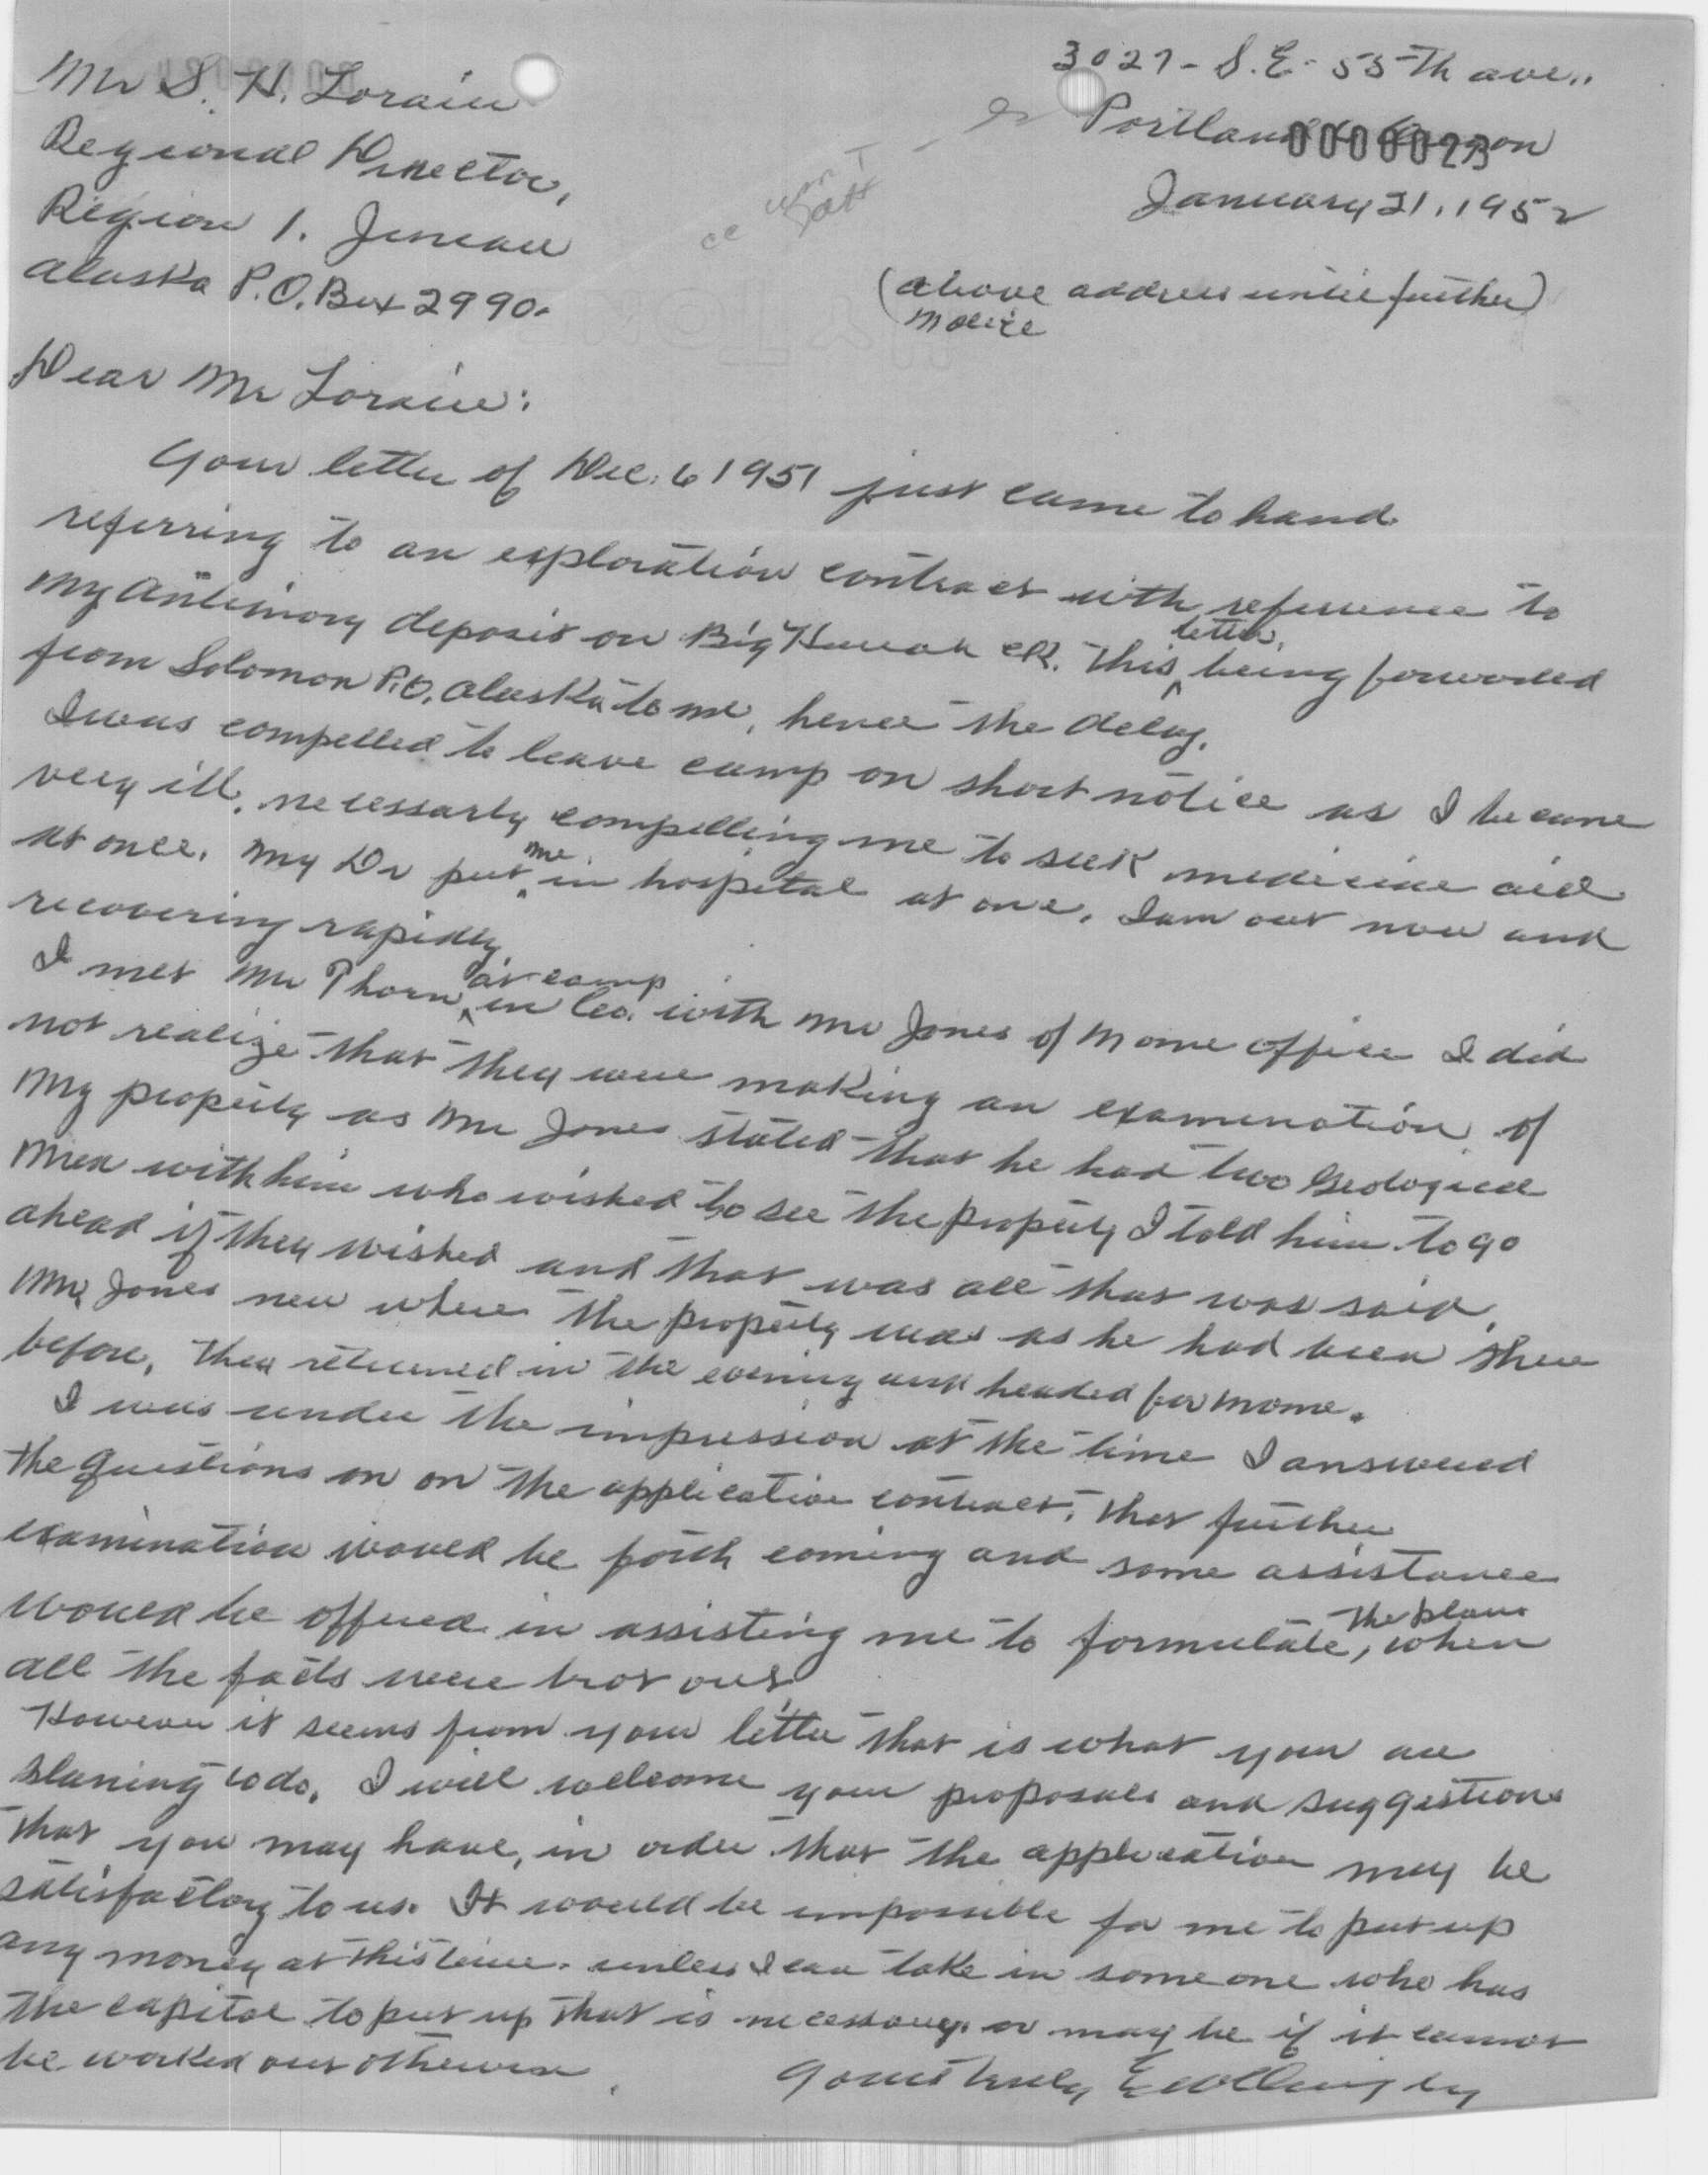 Mr S. H. Lorain
Regional Director,
Region 1. Juneau
Alaska P.O. Box 2990.
3027 - S.E. 55th ave..
Portland Oregon
0000023
January 21, 1952
(above address until further)
notice
Dear Mr Lorain:
Your letter of Dec. 6 1951 just came to hand
referring to an exploration contract with reference to
my Antimony deposit on Big Hurrah CR. This letter, being forwarded
from Solomon P.O. Alaska to me, hence the delay.
I was compelled to leave camp on short notice as I became
very ill, necessarly compelling me to seek medicine aid
at once. My Dr put me in hospital at one. I am out now and
recovering rapidly
I met Mr Thorn at camp in Co. with Mr Jones of Nome office I did
not realize that they were making an examination of
my property as Mr Jones stated that he had two Geological
men with him who wished to see the property I told him to go
ahead if they wished and that was all that was said,
Mr Jones new where the property was as he had been there
before, they returned in the evening and headed for Nome.
I was under the impression at the time I answered
the questions on on the application contract, that further
examination would be forth coming and some assistance
would be offered in assisting me to formulate the plans, when
all the facts were brot out
However it seems from your letter that is what you are
planing to do. I will wellcome your proposals and suggestions
that you may have, in order that the application may be
satisfactory to us. It would be impossible for me to put up
any money at this time. unless I can take in some one who has
the capital to put up that is necessary. or may be if it cannot
be worked out otherwise.
Yours truly